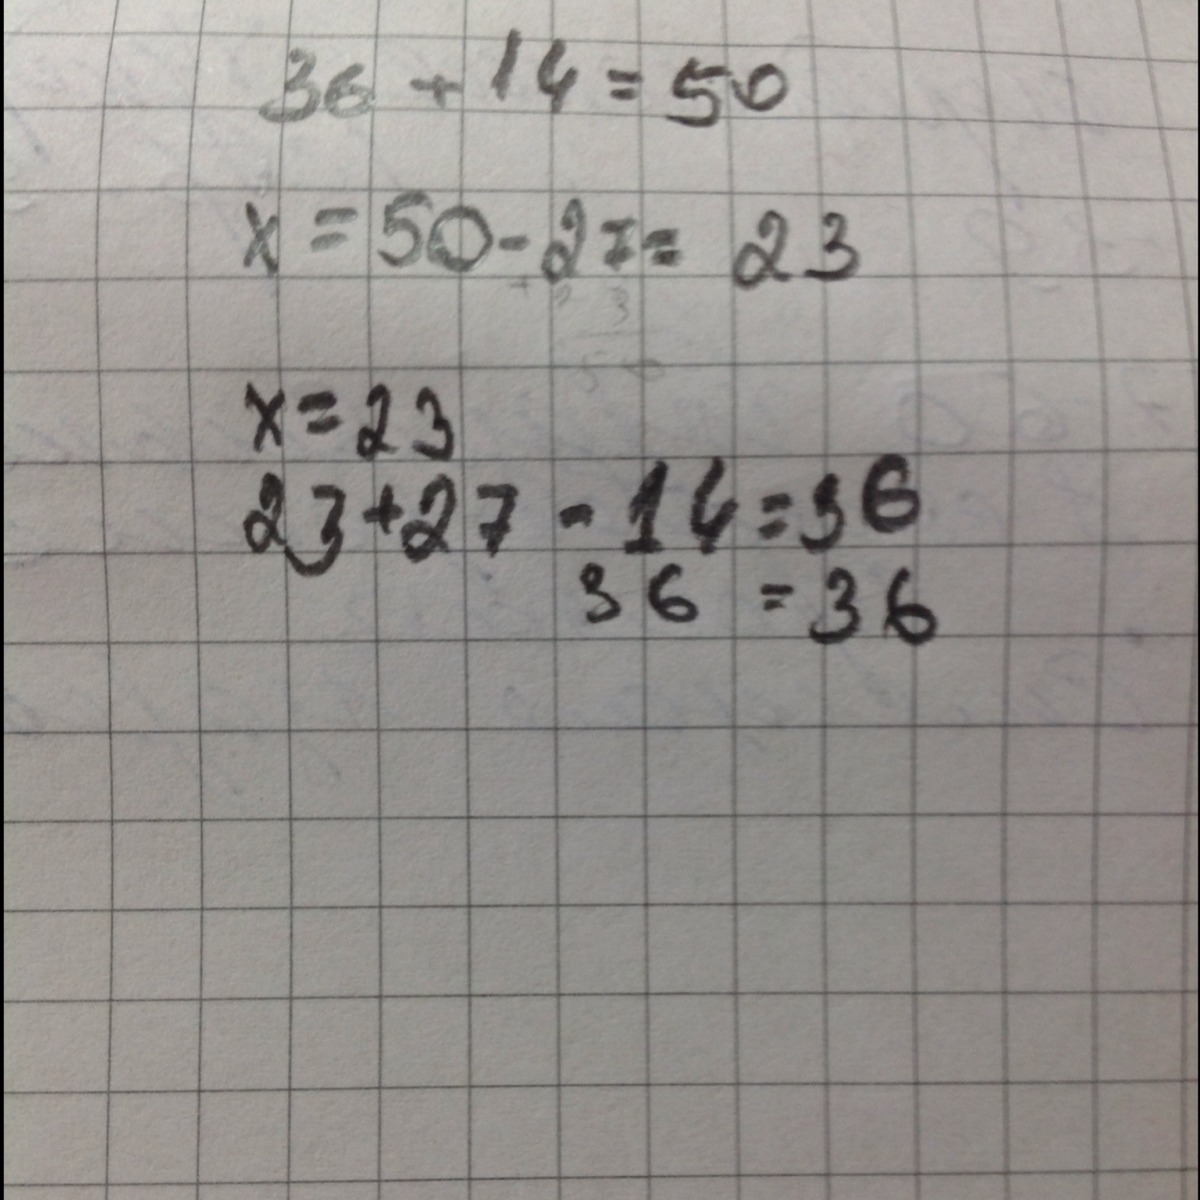 36 + 14 = 50
x = 50 - 27 = 23
x = 23
23 + 27 - 14 = 36
36 = 36